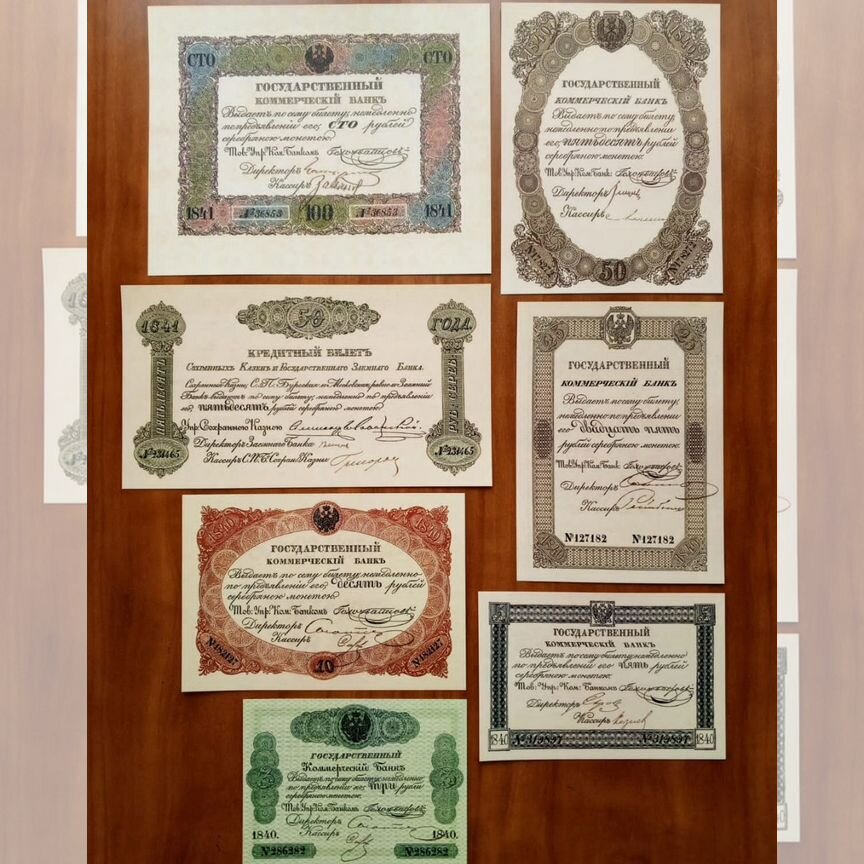 СТО СТО
ГОСУДАРСТВЕННЫЙ
КОММЕРЧЕСКІЙ БАНКЪ
Выдаетъ по сему билету, немедленно
по предъявленіи его, СТО рублей
серебряною монетою.
Тов: Упр: Ком. Банкомъ
Директоръ
Кассиръ
1841 №36853 100 №36853 1841
1840 1840
ГОСУДАРСТВЕННЫЙ
КОММЕРЧЕСКІЙ БАНКЪ
Выдаетъ по сему билету
немедленно по предъявленіи
его, пятьдесятъ рублей
серебряною монетою.
Тов: Упр: Ком: Банк:
Директоръ
Кассиръ
50
1841 50 ГОДА
КРЕДИТНЫЙ БИЛЕТЪ
Сохранныхъ Казенъ и Государственнаго Заемнаго Банка.
Сохранныя Казны С.П. Бургская и Московская, равно и Заемный
Банкъ выдаютъ по сему билету, немедленно по предъявленіи
его, пятьдесятъ рублей серебряною монетою.
Упр: Сохранною Казною
Директоръ Заемнаго Банка
Кассиръ С.П.Б. Сохран: Казны
ПЯТЬДЕСЯТЪ РУБ: СЕРЕБ:
№231465 №231465
25 25
ГОСУДАРСТВЕННЫЙ
КОММЕРЧЕСКІЙ БАНКЪ
Выдаетъ по сему билету
немедленно по предъявленіи
его Двадцать пять
рублей серебряною монетою.
Тов: Упр: Ком: Банк:
Директоръ
Кассиръ
№127182 №127182
1840 1840
1840 1840
ГОСУДАРСТВЕННЫЙ
КОММЕРЧЕСКІЙ БАНКЪ
Выдаетъ по сему билету, немедленно
по предъявленіи его, десять рублей
серебряною монетою.
Тов: Упр: Ком: Банкомъ
Директоръ
Кассиръ
10
5 5
ГОСУДАРСТВЕННЫЙ
КОММЕРЧЕСКІЙ БАНКЪ
Выдаетъ по сему билету, немедленно
по предъявленіи его пять рублей
серебряною монетою.
Тов: Упр: Ком: Банкомъ
Директоръ
Кассиръ
1840 №319897 №319897 1840
ГОСУДАРСТВЕННЫЙ
Коммерческій Банкъ
Выдаетъ по сему билету, немедленно
по предъявленіи его, три рубли
серебряною монетою.
Тов: Упр: Ком: Банкомъ
Директоръ
1840. Кассиръ 1840.
№286282 №286282